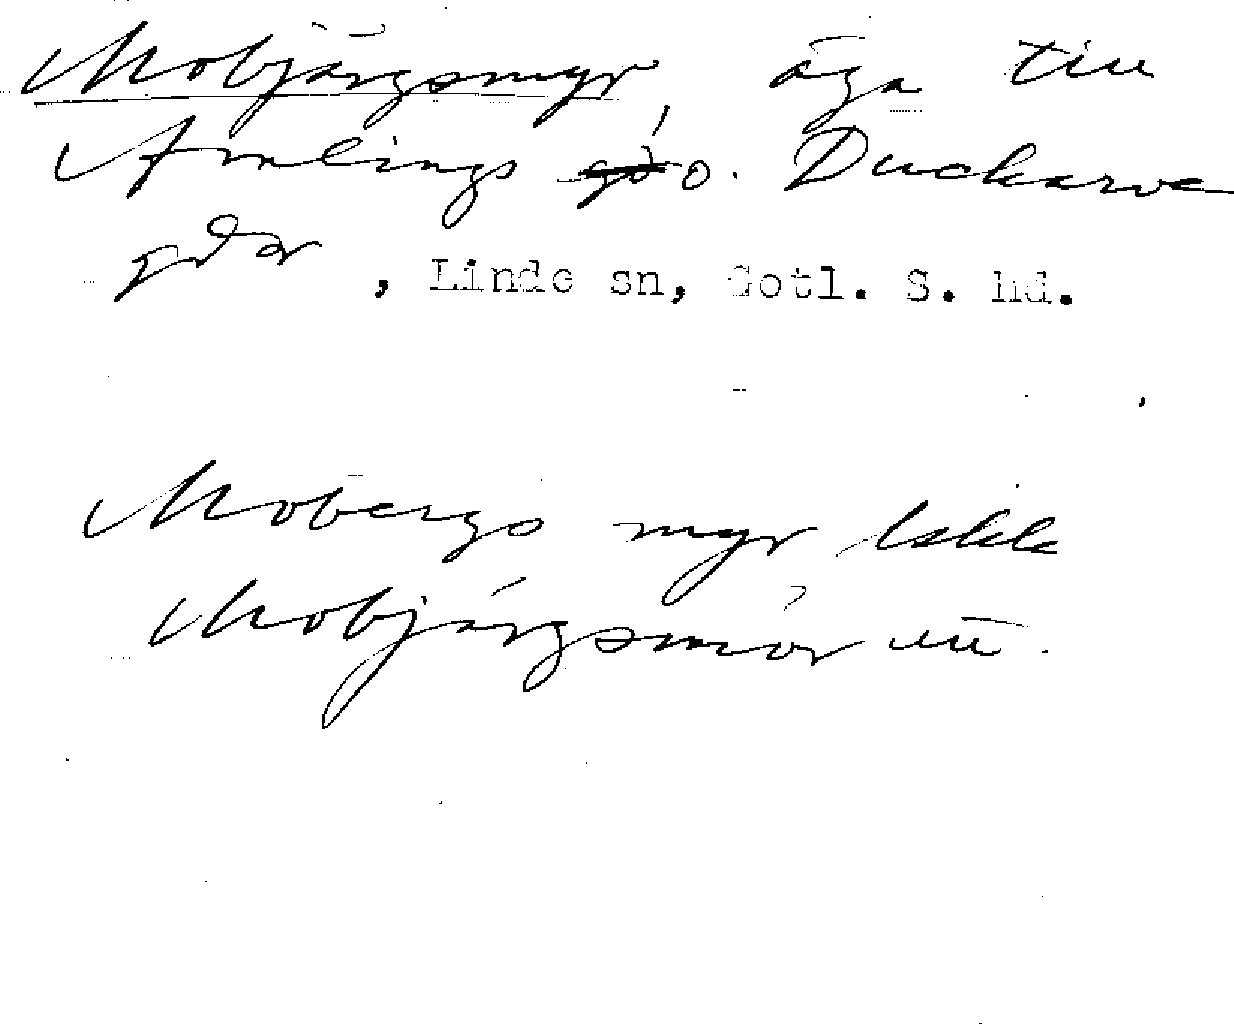 Mobjärgsmyr, äga till
Amlings o. Duckarve
gdr, Linde sn, Gotl. S. hd.
Mobergs myr
Mobjärgsmör